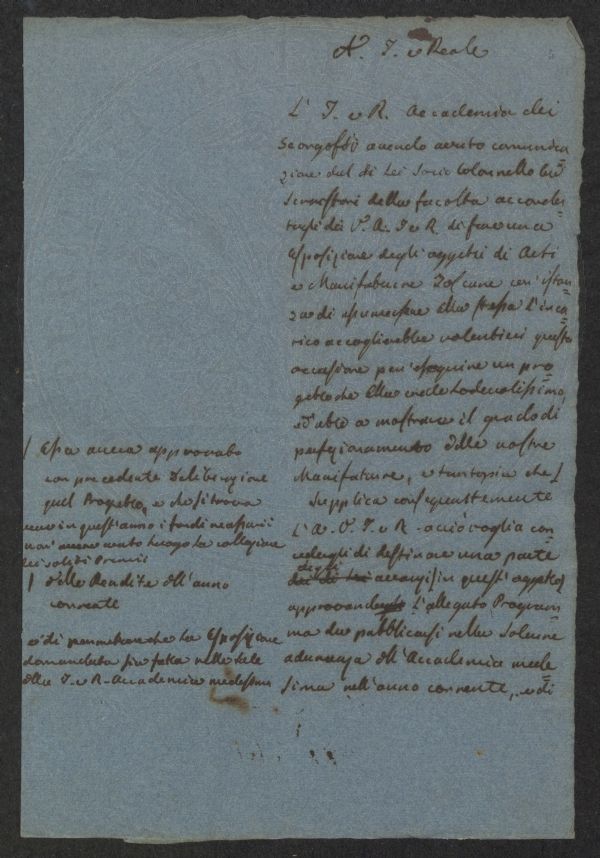 A. I. e Reale
L'I. e R. Accademia dei
Georgofili avendo avuto comunica
zione dal di Lei Socio Colonnello
Serristori della facoltà accorda-
tagli da V. A. I. e R. di fare una
Esposizione degli oggetti di Arti
e Manifatture Toscane con istan-
za di assumersene ella stessa l'inca
rico accoglierebbe volentieri questa
occasione per eseguire un pro
getto che ella crede lodevolissimo,
ed'abile a mostrare il grado di
perfezionamento delle nostre
Manifatture, e tantopiù che /
Supplica conseguentemente
L'A. V. I. e R. acciò voglia con
cedergli di destinare una parte
degli
dei di Lei avanzi / in questi oggetti
approvandogli l'allegato Program
ma da pubblicarsi nella Solenne
adunanza dell'Accademia mede
sima nell'anno corrente, e di
/ Essa aveva approvato
con precedente Deliberazione
quel Progetto, e che si trova
avere in quest'anno i fondi necessarii
non avendo avuto luogo la collazione
dei soliti Premii
/ delle Rendite dell'anno
corrente
e di permettere che la Esposizione
domandata sia fatta nelle Sale
della I. e R. Accademia medesima